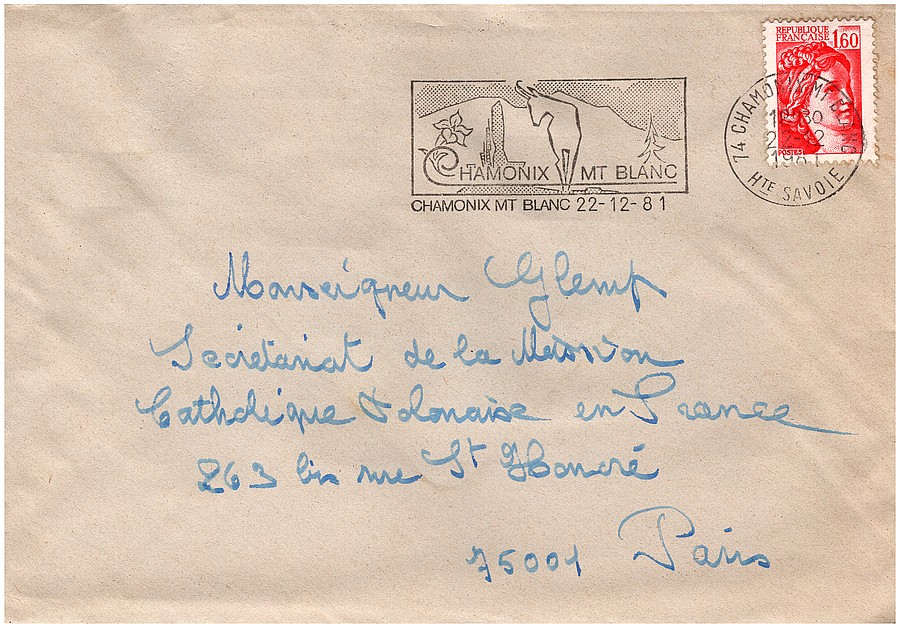 REPUBLIQUE
FRANÇAISE 1,60
POSTES
74 CHAMONIX MT BLANC
22-12
1981
HTE SAVOIE
CHAMONIX MT BLANC
CHAMONIX MT BLANC 22-12-81
Monseigneur Glemp
Secrétariat de la Mission
Catholique Polonaise en France
263 bis rue St Honoré
75001 Paris